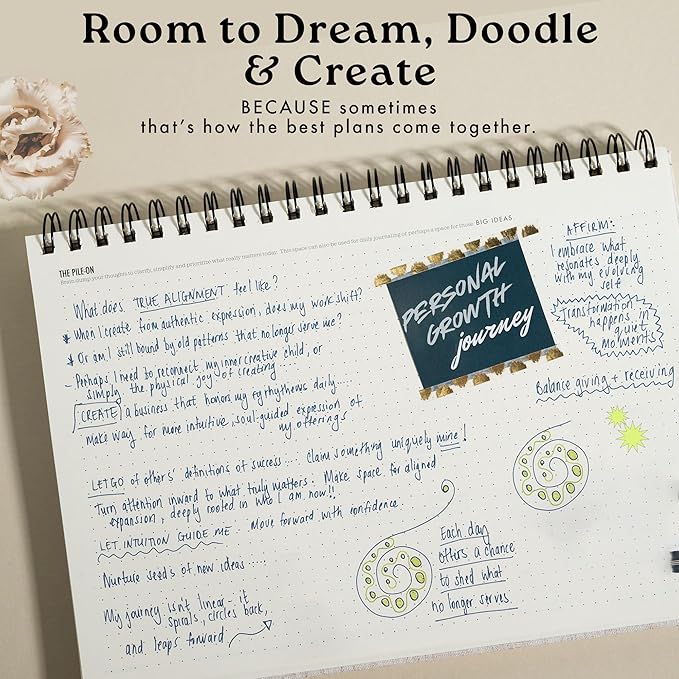 Room to Dream, Doodle
& Create
BECAUSE sometimes
that's how the best plans come together.
THE PILE-ON
Brain dump your thoughts to clarify, simplify and prioritize what really matters today. This space can also be used for daily journaling or perhaps a space for those BIG IDEAS.
What does TRUE ALIGNMENT feel like?
* When I create from authentic expression, does my work shift?
* Or am I still bound by old patterns that no longer serve me?
- Perhaps I need to reconnect my inner creative child, or
simply the physical joy of creating.....
CREATE a business that honors my rhythms daily....
Make way for more intuitive, soul-guided expression of
my offerings
LET GO of others' definitions of success.... Claim something uniquely mine!
Turn attention inward to what truly matters. Make space for aligned
expansion, deeply rooted in who I am now!!
LET INTUITION GUIDE ME. Move forward with confidence.
Nurture seeds of new ideas.....
My journey isn't linear - it
spirals, circles back,
and leaps forward
PERSONAL
GROWTH
journey
AFFIRM:
I embrace what
resonates deeply
with my evolving
self
Transformation
happens in
quiet
moments
Balance giving + receiving
Each day
offers a chance
to shed what
no longer serves